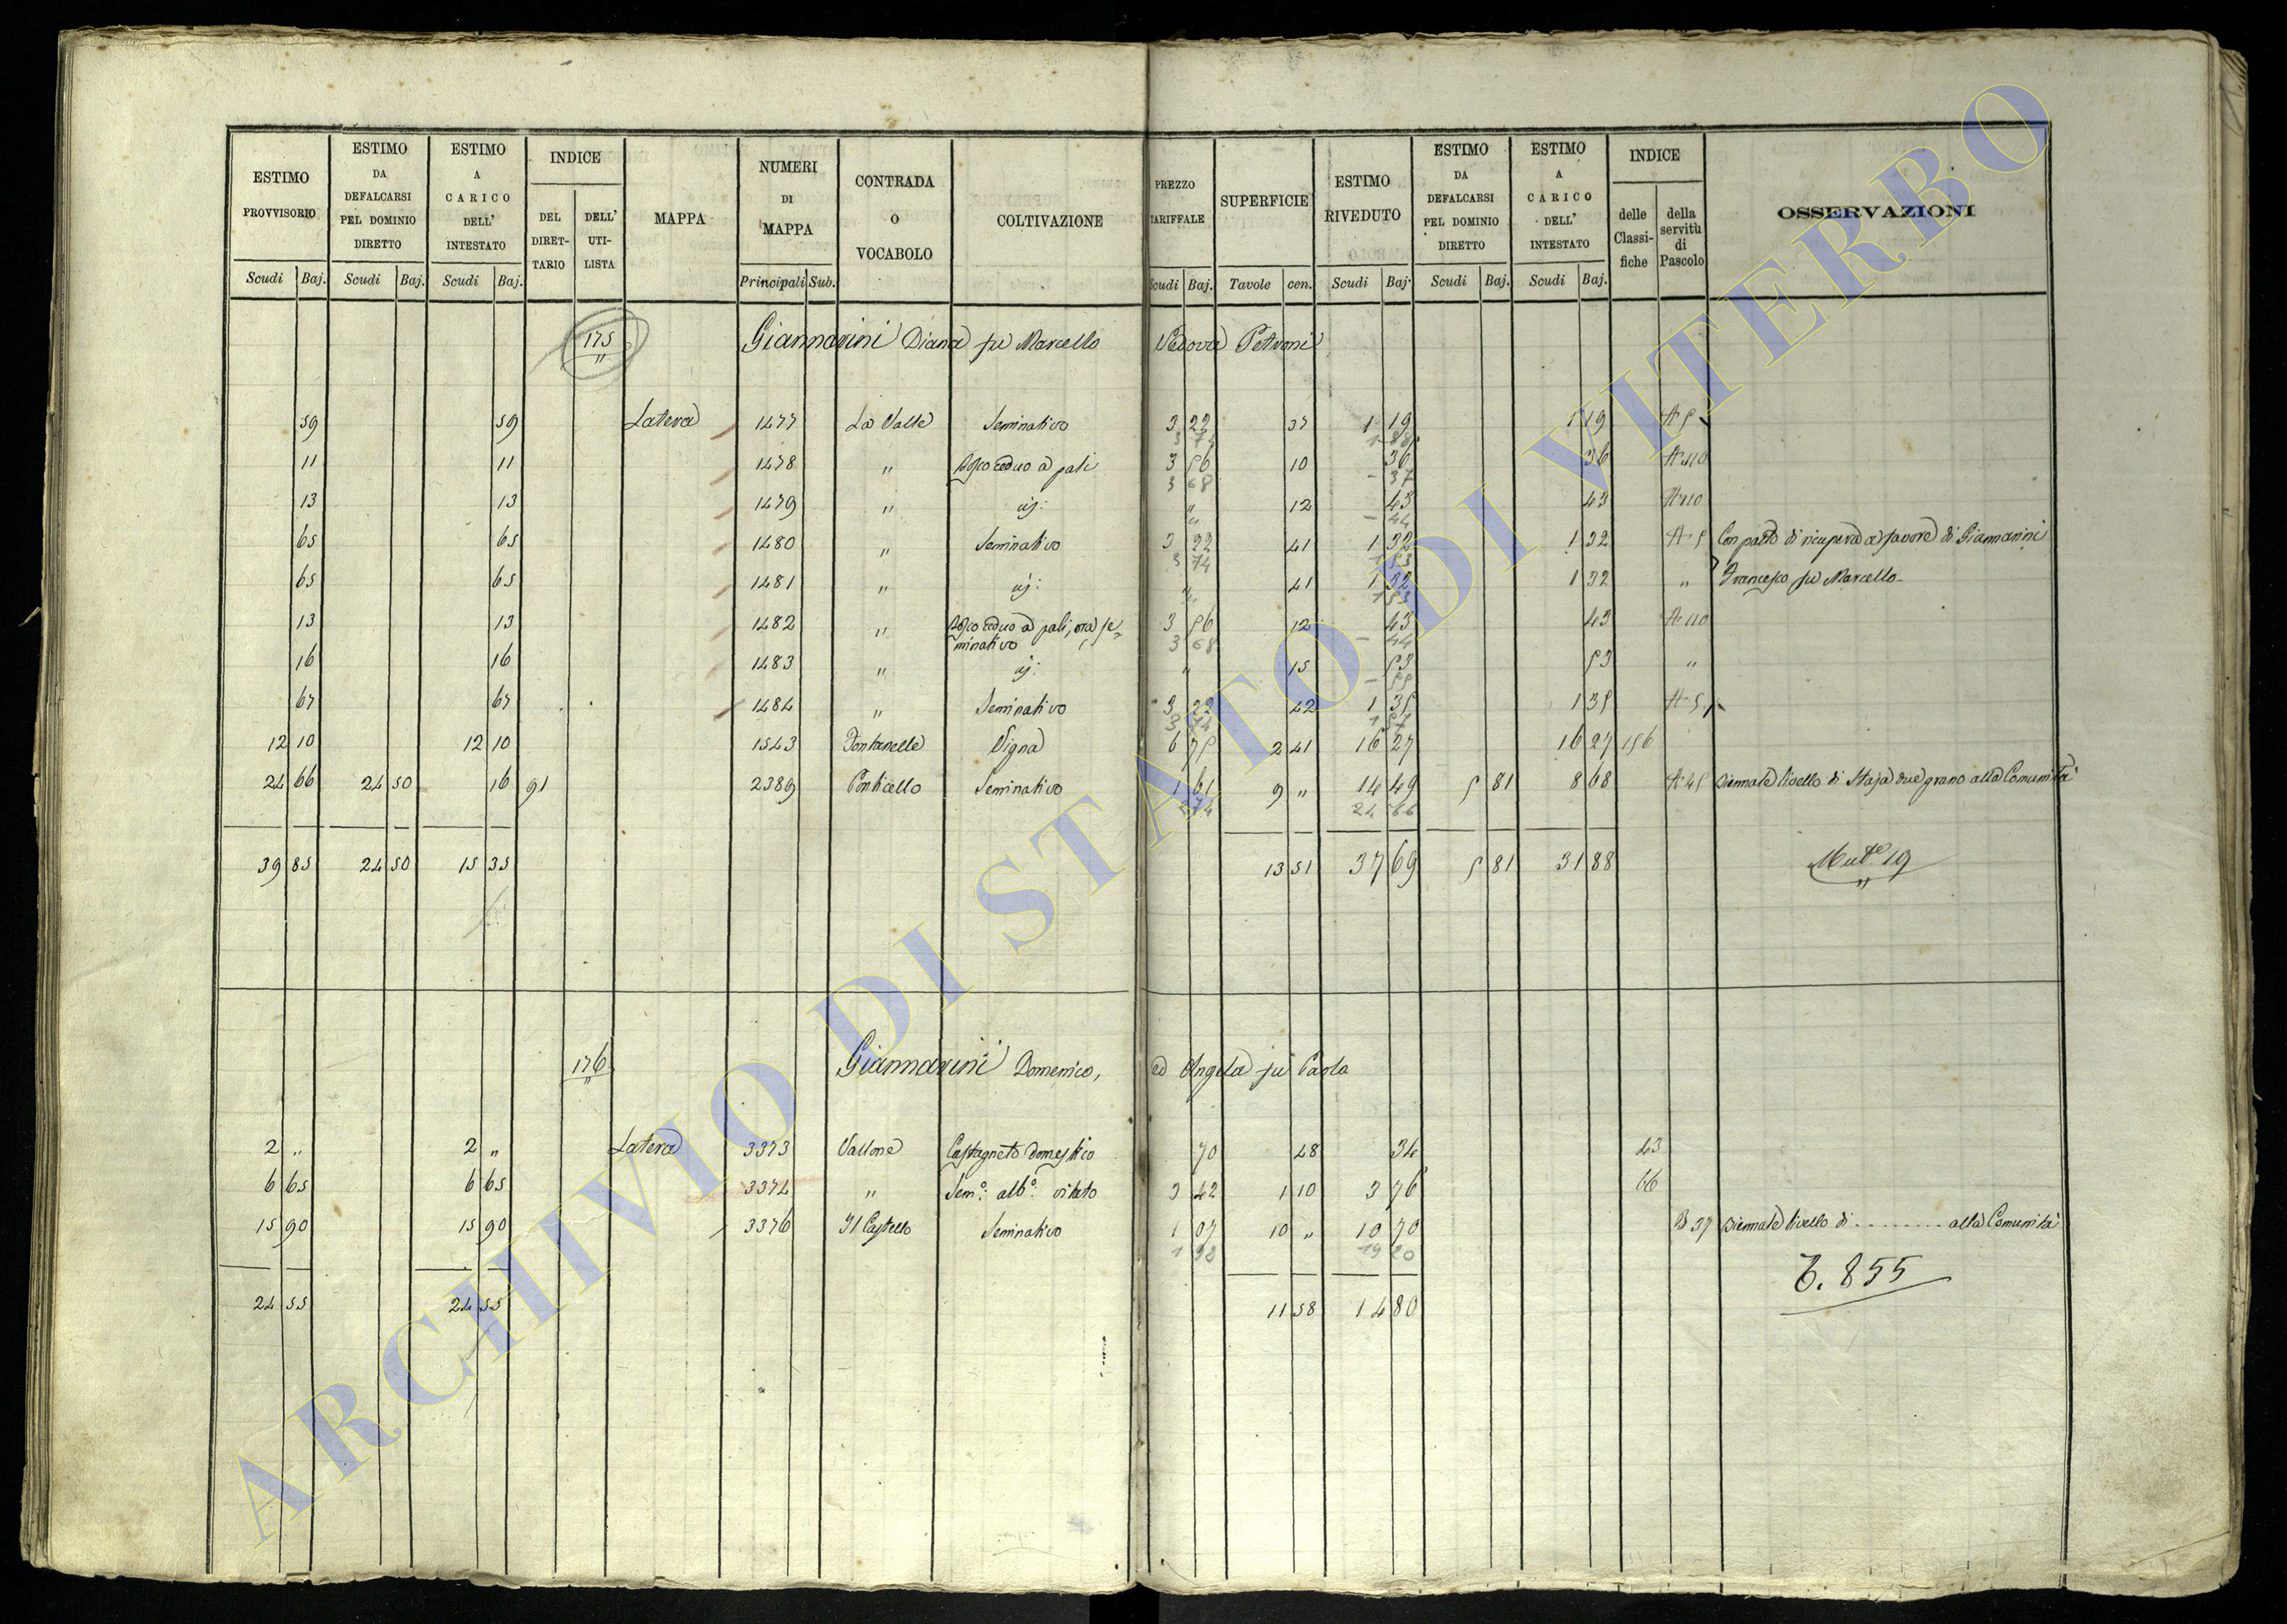 ESTIMO PROVVISORIO Scudi Baj. ESTIMO DA DEFALCARSI PEL DOMINIO DIRETTO Scudi Baj. ESTIMO A CARICO DELL' INTESTATO Scudi Baj. INDICE DEL DIRET-TARIO DELL' UTI-LISTA MAPPA NUMERI DI MAPPA Principali Sub. CONTRADA O VOCABOLO COLTIVAZIONE PREZZO TARIFFALE Scudi Baj. SUPERFICIE Tavole cen. ESTIMO RIVEDUTO Scudi Baj. ESTIMO DA DEFALCARSI PEL DOMINIO DIRETTO Scudi Baj. ESTIMO A CARICO DELL' INTESTATO Scudi Baj. INDICE delle Classi-fiche della servitù di Pascolo OSSERVAZIONI
175 Giannarini Diana fu Marcello Vedova Petroni
59 59 Latera 1477 La Valle Seminativo 3 22 37 1 19 1 19 A 5
3 74 1 38
11 11 1478 " Bosco ceduo a pali 3 56 10 36 36 A 110
3 68 - 37
13 13 1479 " id: " 12 43 43 A 110
" - 44
65 65 1480 " Seminativo 3 22 41 1 32 1 32 A 5 Con patto di ricupera a favore di Giannarini
3 74 1 53
65 65 1481 " id: " 41 1 32 1 32 " Francesco fu Marcello
" 1 53
13 13 1482 " Bosco ceduo a pali, ora se- 3 56 12 43 43 A 110
minativo 3 68 - 44
16 16 1483 " id: " 15 53 53 "
- 55
67 67 1484 " Seminativo 3 22 42 1 35 1 35 A 5
3 74 1 57
12 10 12 10 1543 Fontanelle Vigna 6 75 2 41 16 27 16 27 156
24 66 24 50 16 91 2389 Ponticello Seminativo 1 61 9 " 14 49 5 81 8 68 A 45 Biennale livello di Staja due grano alla Comunità
2 74 24 66
39 85 24 50 15 35 13 51 37 69 5 81 31 88 Mut.e 19
176 Giannarini Domenico, ed Angela fu Paolo
2 " 2 " Latera 3373 Vallone Castagneto domestico 70 48 34 43
6 65 6 65 3374 " Sem.o alb.o vitato 3 42 1 10 3 76 66
15 90 15 90 3376 Il Castello Seminativo 1 07 10 " 10 70 B 37 Biennale livello di ........ alla Comunità
1 92 19 20
24 55 24 55 11 58 14 80 T. 855
ARCHIVIO DI STATO DI VITERBO